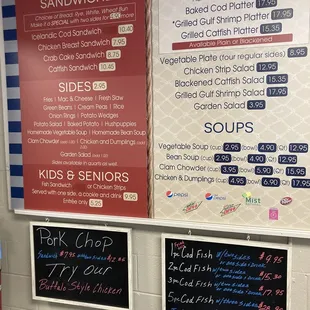 SANDWICHES
Choices of Bread: Rye, White, Wheat, Bun
Make it a SPECIAL with two sides for 2.95 more
Icelandic Cod Sandwich 10.40
Chicken Breast Sandwich 7.95
Crab Cake Sandwich 8.75
Catfish Sandwich 10.45
SIDES 2.95
Fries | Mac. & Cheese | Fresh Slaw
Green Beans | Cream Peas | Rice
Onion Rings | Potato Wedges
Potato Salad | Baked Potato | Hushpuppies
Homemade Vegetable Soup | Homemade Bean Soup
Clam Chowder | Chicken and Dumplings
Garden Salad
Side salads available in quarts as well
KIDS & SENIORS
Fish Sandwich or Chicken Strips
Served with one side, a cookie and a drink 9.95
Entrée only 5.25
Baked Cod Platter 17.95
*Grilled Gulf Shrimp Platter 17.95
Grilled Catfish Platter 17.35
Available Plain or Blackened
Vegetable Plate (four regular sides) 8.95
Chicken Strip Salad 12.95
Blackened Catfish Salad 15.35
Grilled Gulf Shrimp Salad 14.95
Garden Salad 3.95
SOUPS
Vegetable Soup (cup) 2.95 (bowl) 4.90 (Qt) 12.95
Bean Soup (cup) 2.95 (bowl) 4.90 (Qt) 12.95
Clam Chowder (cup) 3.50 (bowl) 5.95 (Qt) 15.95
Chicken & Dumplings (cup) 4.95 (bowl) 6.90 (Qt) 17.95
pepsi
pepsi
Mist
Pork Chop
Sandwich $7.95
Try Our
Buffalo Style Chicken
1pc Cod Fish w/two sides $9.95
2pc Cod Fish w/two sides $15.30
3pc Cod Fish w/two sides $17.95
5pc Cod Fish w/three sides